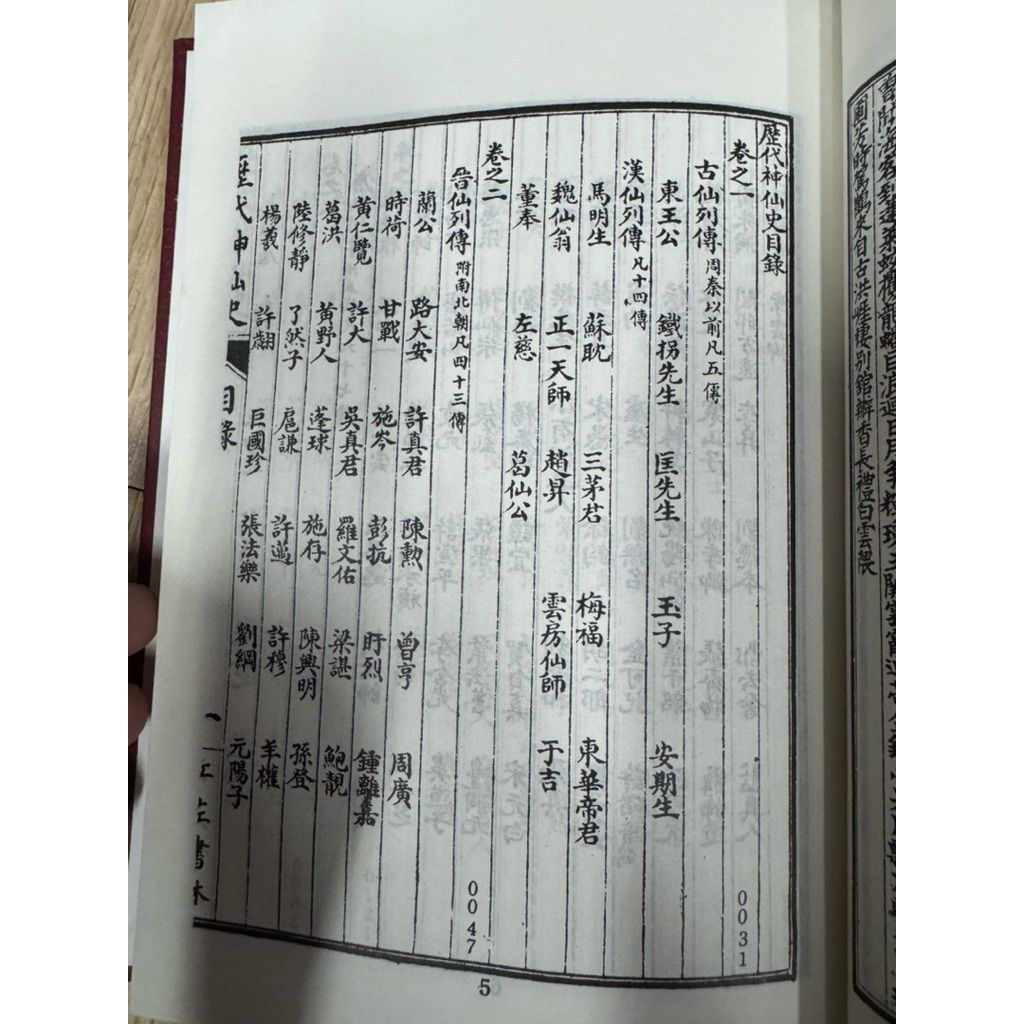 芳時駕鶴來自古洪崖棲別館瓣香長禮白雲隈
歷代神仙史目錄
卷之一 0031
古仙列傳 周秦以前凡五傳
東王公 鐵拐先生 匡先生 玉子 安期生
漢仙列傳 凡十四傳
馬明生 蘇耽 三茅君 梅福 東華帝君
魏仙翁 正一天師 趙昇 雲房仙師 于吉
董奉 左慈 葛仙公
卷之二 0047
晉仙列傳 附南北朝凡四十三傳
蘭公 路大安 許真君 陳勳 曾亨 周廣
時荷 甘戰 施岑 彭抗 盱烈 鍾離嘉
黃仁覽 許大 吳真君 羅文佑 梁諶 鮑靚
葛洪 黃野人 蓬球 施存 陳興明 孫登
陸修靜 了然子 扈謙 許邁 許穆 羊權
楊羲 許翽 巨國珍 張法樂 劉綱 元陽子
歷代神仙史 目錄 一
5